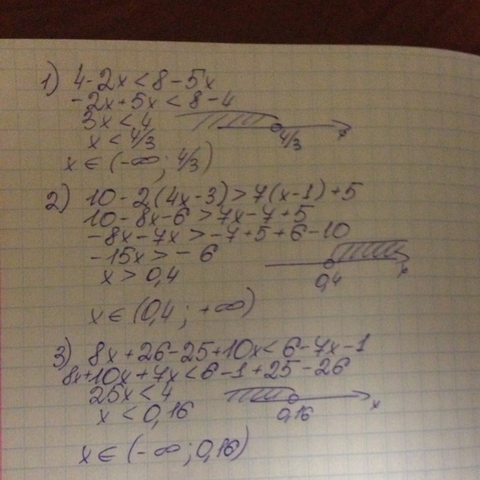 1) 4-2x<8-5x
-2x+5x<8-4
3x<4
x<4/3
4/3
x
x∈(-∞; 4/3)
2) 10-2(4x-3)>7(x-1)+5
10-8x-6>7x-7+5
-8x-7x>-7+5+6-10
-15x>-6
x>0,4
0,4
x
x∈(0,4; +∞)
3) 8x+26-25+10x<6-7x-1
8x+10x+7x<6-1+25-26
25x<4
x<0,16
0,16
x
x∈(-∞; 0,16)